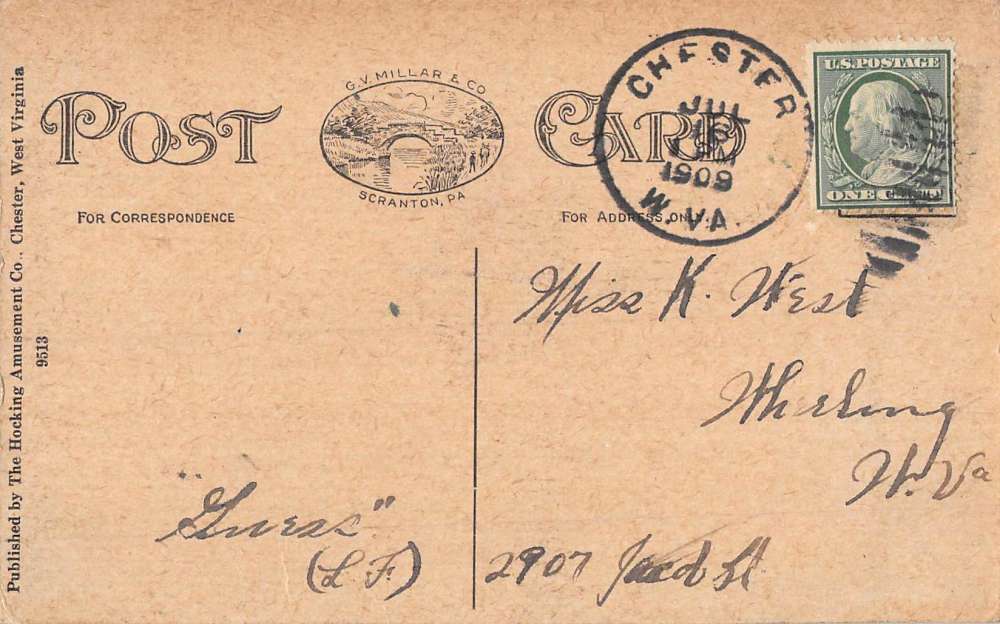 POST CARD
G. V. MILLAR & CO.
SCRANTON, PA.
FOR CORRESPONDENCE
FOR ADDRESS ONLY.
CHESTER
JUL
1909
W. VA.
U.S. POSTAGE
ONE CENT
Published by The Hocking Amusement Co., Chester, West Virginia
9513
Miss K. West
Wheeling
W. Va
"Guess"
(L F.)
2907 Jacob St